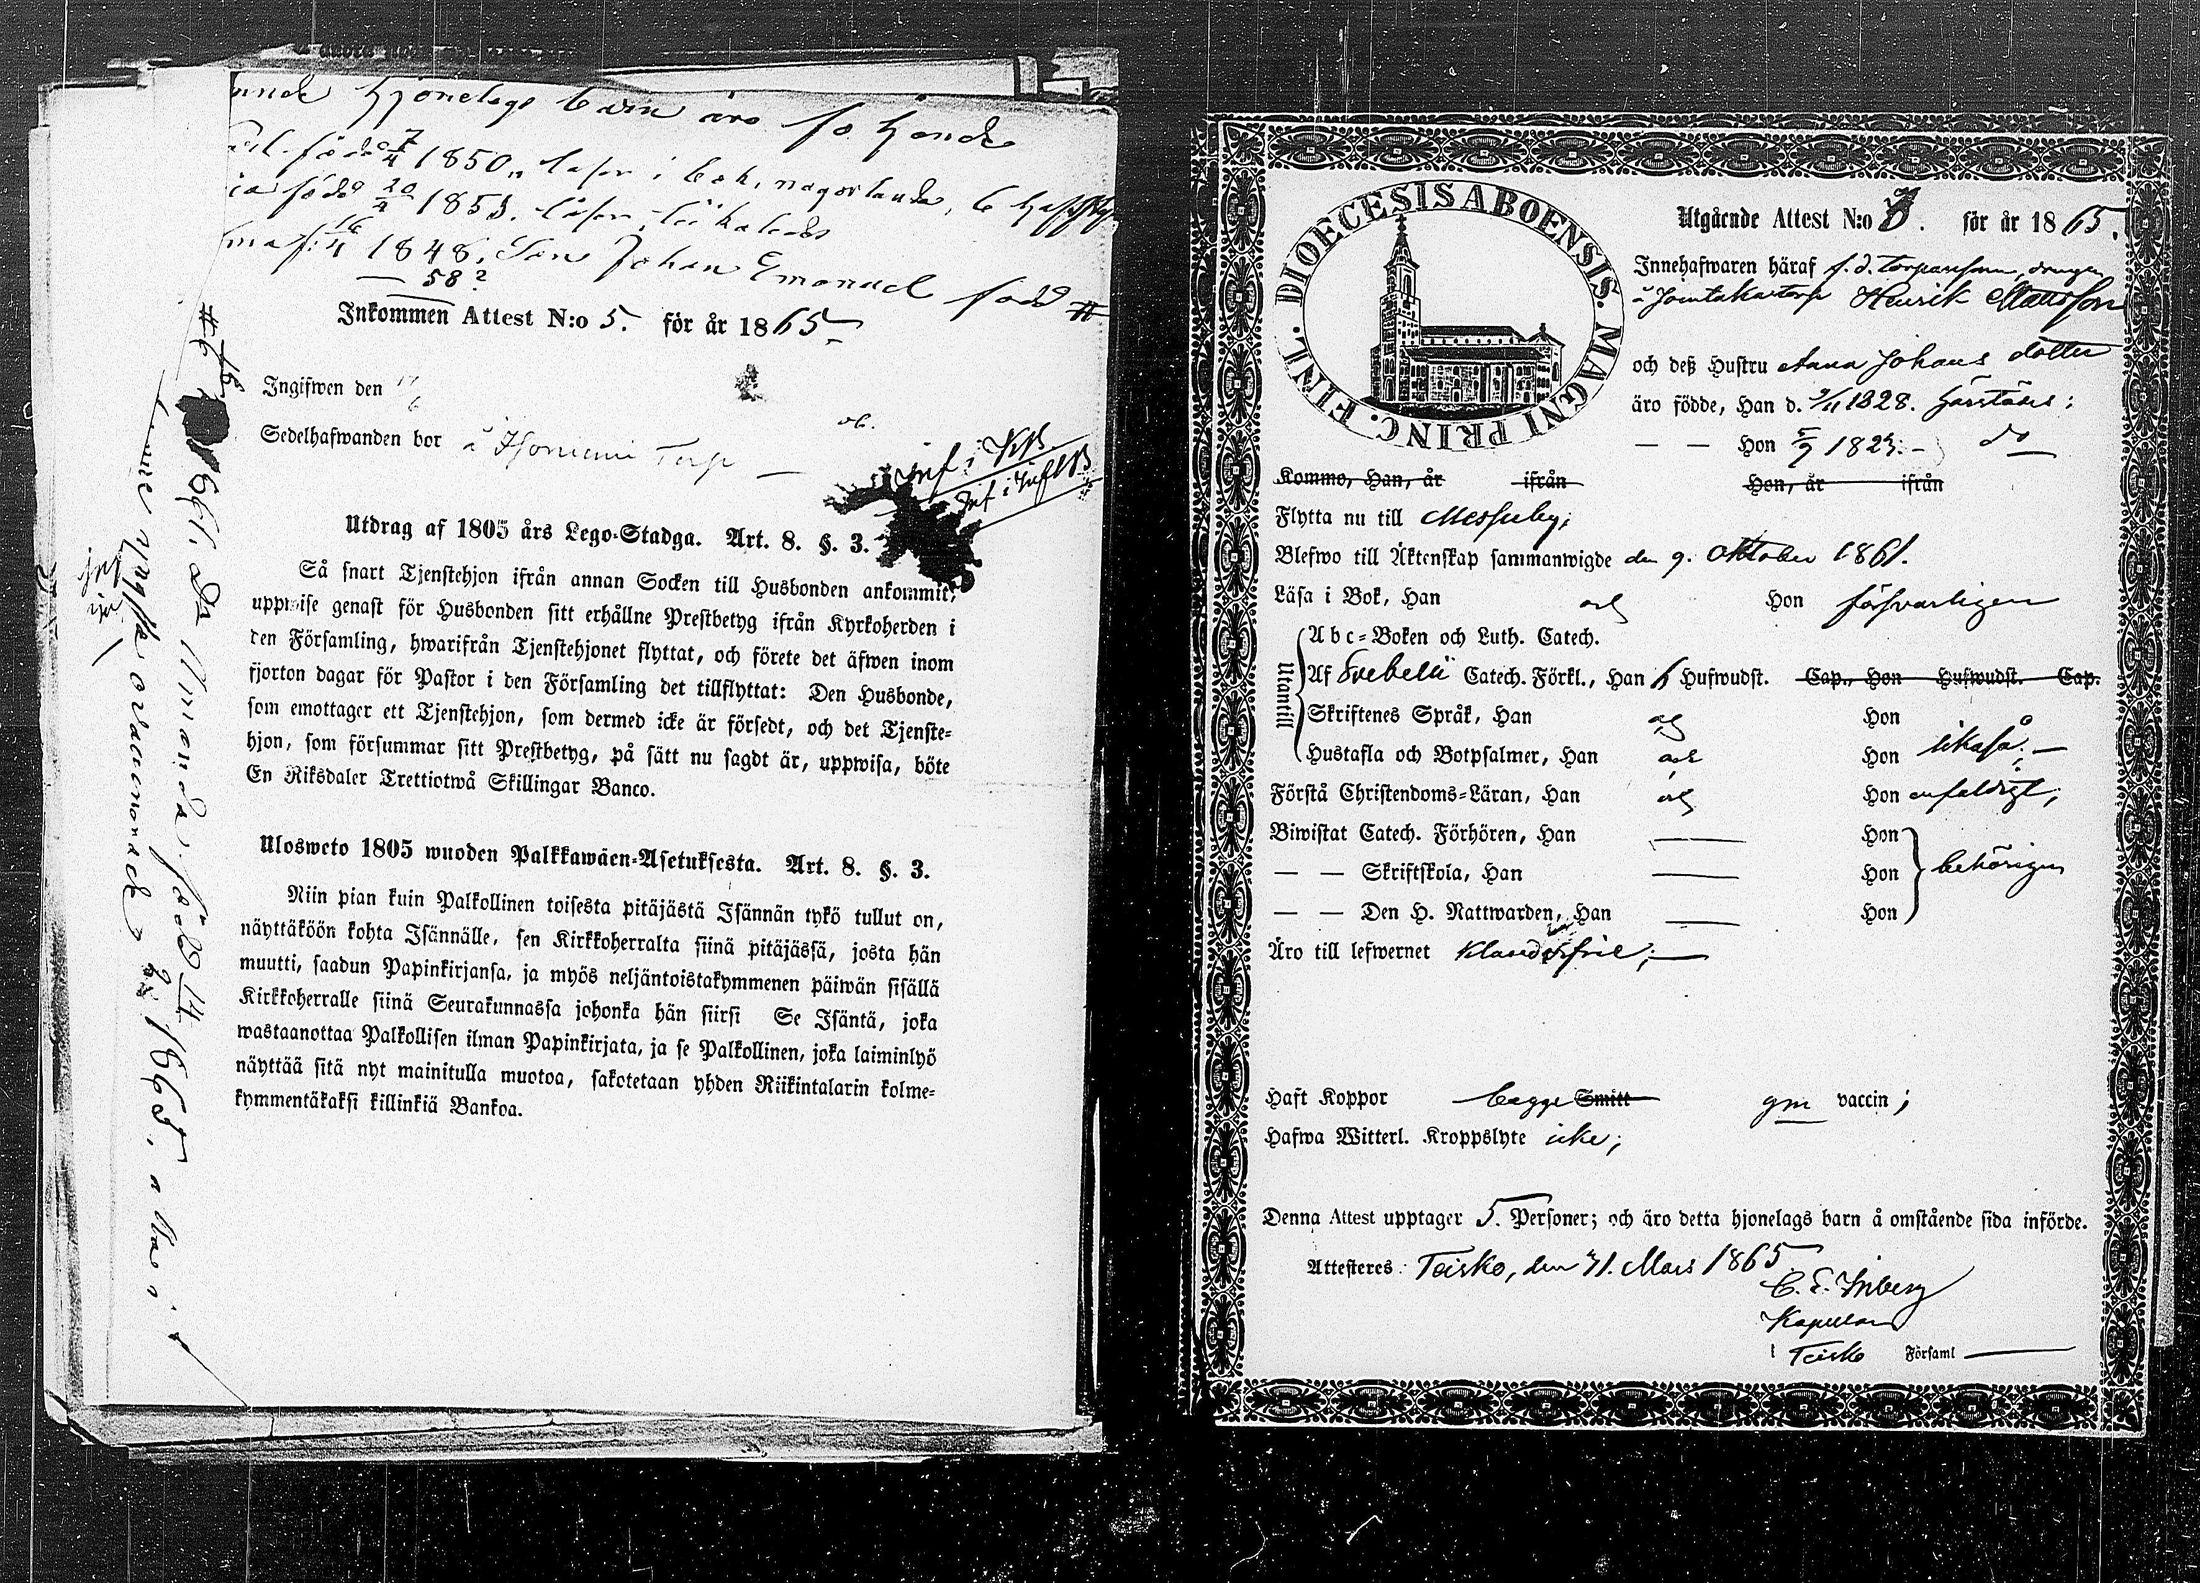 Hjonelags barn äro följande
född 7/4 1850, läser i bok, 6 Hufst
född 20/4 1853. läser
16/4 1848. Son Johan Emanuel född #
— 58?
Inkommen Attest N:o 5. för år 1865
Ingifwen den
Sedelhafwanden bor å Torp —
inf i KB
inf i InflB
Utdrag af 1805 års Lego-Stadga. Art. 8. §. 3.
Så snart Tjenstehjon ifrån annan Socken till Husbonden ankommit,
uppwise genast för Husbonden sitt erhållne Prestbetyg ifrån Kyrkoherden i
den Församling, hwarifrån Tjenstehjonet flyttat, och förete det äfwen inom
fjorton dagar för Pastor i den Församling det tillflyttat: Den Husbonde,
som emottager ett Tjenstehjon, som dermed icke är försedt, och det Tjenste-
hjon, som försummar sitt Prestbetyg, på sätt nu sagdt är, uppwisa, böte
En Riksdaler Trettiotwå Skillingar Banco.
Ulosweto 1805 wuoden Palkkawäen-Asetuksesta. Art. 8. §. 3.
Niin pian kuin Palkollinen toisesta pitäjästä Isännän tykö tullut on,
näyttäköön kohta Isännälle, sen Kirkkoherralta siinä pitäjässä, josta hän
muutti, saadun Papinkirjansa, ja myös neljäntoistakymmenen päiwän sisällä
Kirkkoherralle siinä Seurakunnassa johonka hän siirsi Se Isäntä, joka
wastaanottaa Palkollisen ilman Papinkirjata, ja se Palkollinen, joka laiminlyö
näyttää sitä nyt mainitulla muotoa, sakotetaan yhden Riikintalarin kolme-
kymmentäkaksi killinkiä Bankoa.
DIOECESIS ABOENSIS. MAGNI PRINC. FINL.
Utgående Attest N:o 8. för år 1865.
Innehafwaren häraf f. d. torparesonen, drängen
å torp Henrik Mattsson
och deß Hustru Anna Johans dotter
äro födde, Han d. 1828. härstädes;
— — Hon 5/9 1823. — do
Kommo, Han, år ifrån Hon, år ifrån
Flytta nu till Messuby;
Blefwo till Äktenskap sammanwigde den 9. Oktober 1861.
Läsa i Bok, Han och Hon försvarligen
Utantill
Abc-Boken och Luth. Catech.
Af Svebelii Catech. Förkl., Han 6 Hufwudst. Cap., Hon Hufwudst. Cap.
Skriftenes Språk, Han och Hon
Hustafla och Botpsalmer, Han och Hon likaså; —
Förstå Christendoms-Läran, Han och Hon enfaldigt;
Biwistat Catech. Förhören, Han — Hon
— — Skriftskola, Han — Hon behörigen
— — Den H. Nattwarden, Han — Hon
Äro till lefwernet klanderfrie; —
Haft Koppor bägge Smitt gm vaccin;
Hafwa Witterl. Kroppslyte icke;
Denna Attest upptager 5. Personer; och äro detta hjonelags barn å omstående sida införde.
Attesteres: Teisko, den 31. Mars 1865
Kapellan
i Teisko Församl —